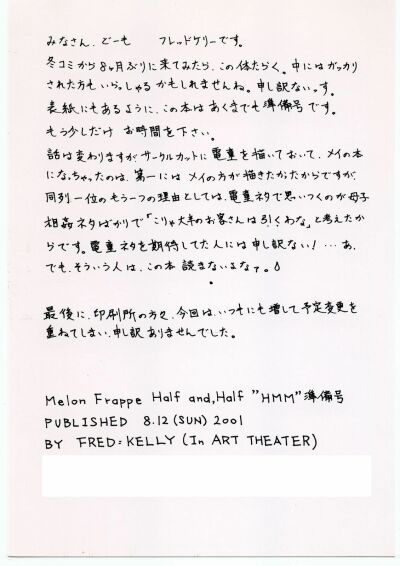 みなさん、どーも　フレッドケリーです。
冬コミから8ヶ月ぶりに来てみたら、この体たらく。中にはガッカリ
された方もいらっしゃるかもしれませんね。申し訳ないっす。
表紙にもあるように、この本はあくまでも準備号です。
もう少しだけ お時間を下さい。
話は変わりますが、サークルカットに電童を描いておいて、メイの本
になっちゃったのは、第一にはメイの方が描きたかったからですが、
同列一位のもう一つの理由としては、電童ネタで思いつくのが母子
相姦ネタばかりで「こりゃ大半のお客さんは引くわな」と考えたか
らです。電童ネタを期待してた人には申し訳ない！…あ、
でも、そういう人は、この本 読まないよなァ。
最後に、印刷所の方々、今回は、いつにも増して予定変更を
重ねてしまい、申し訳ありませんでした。
Melon Frappe Half and, Half "HMM" 準備号
PUBLISHED 8.12 (SUN) 2001
BY FRED=KELLY (In ART THEATER)